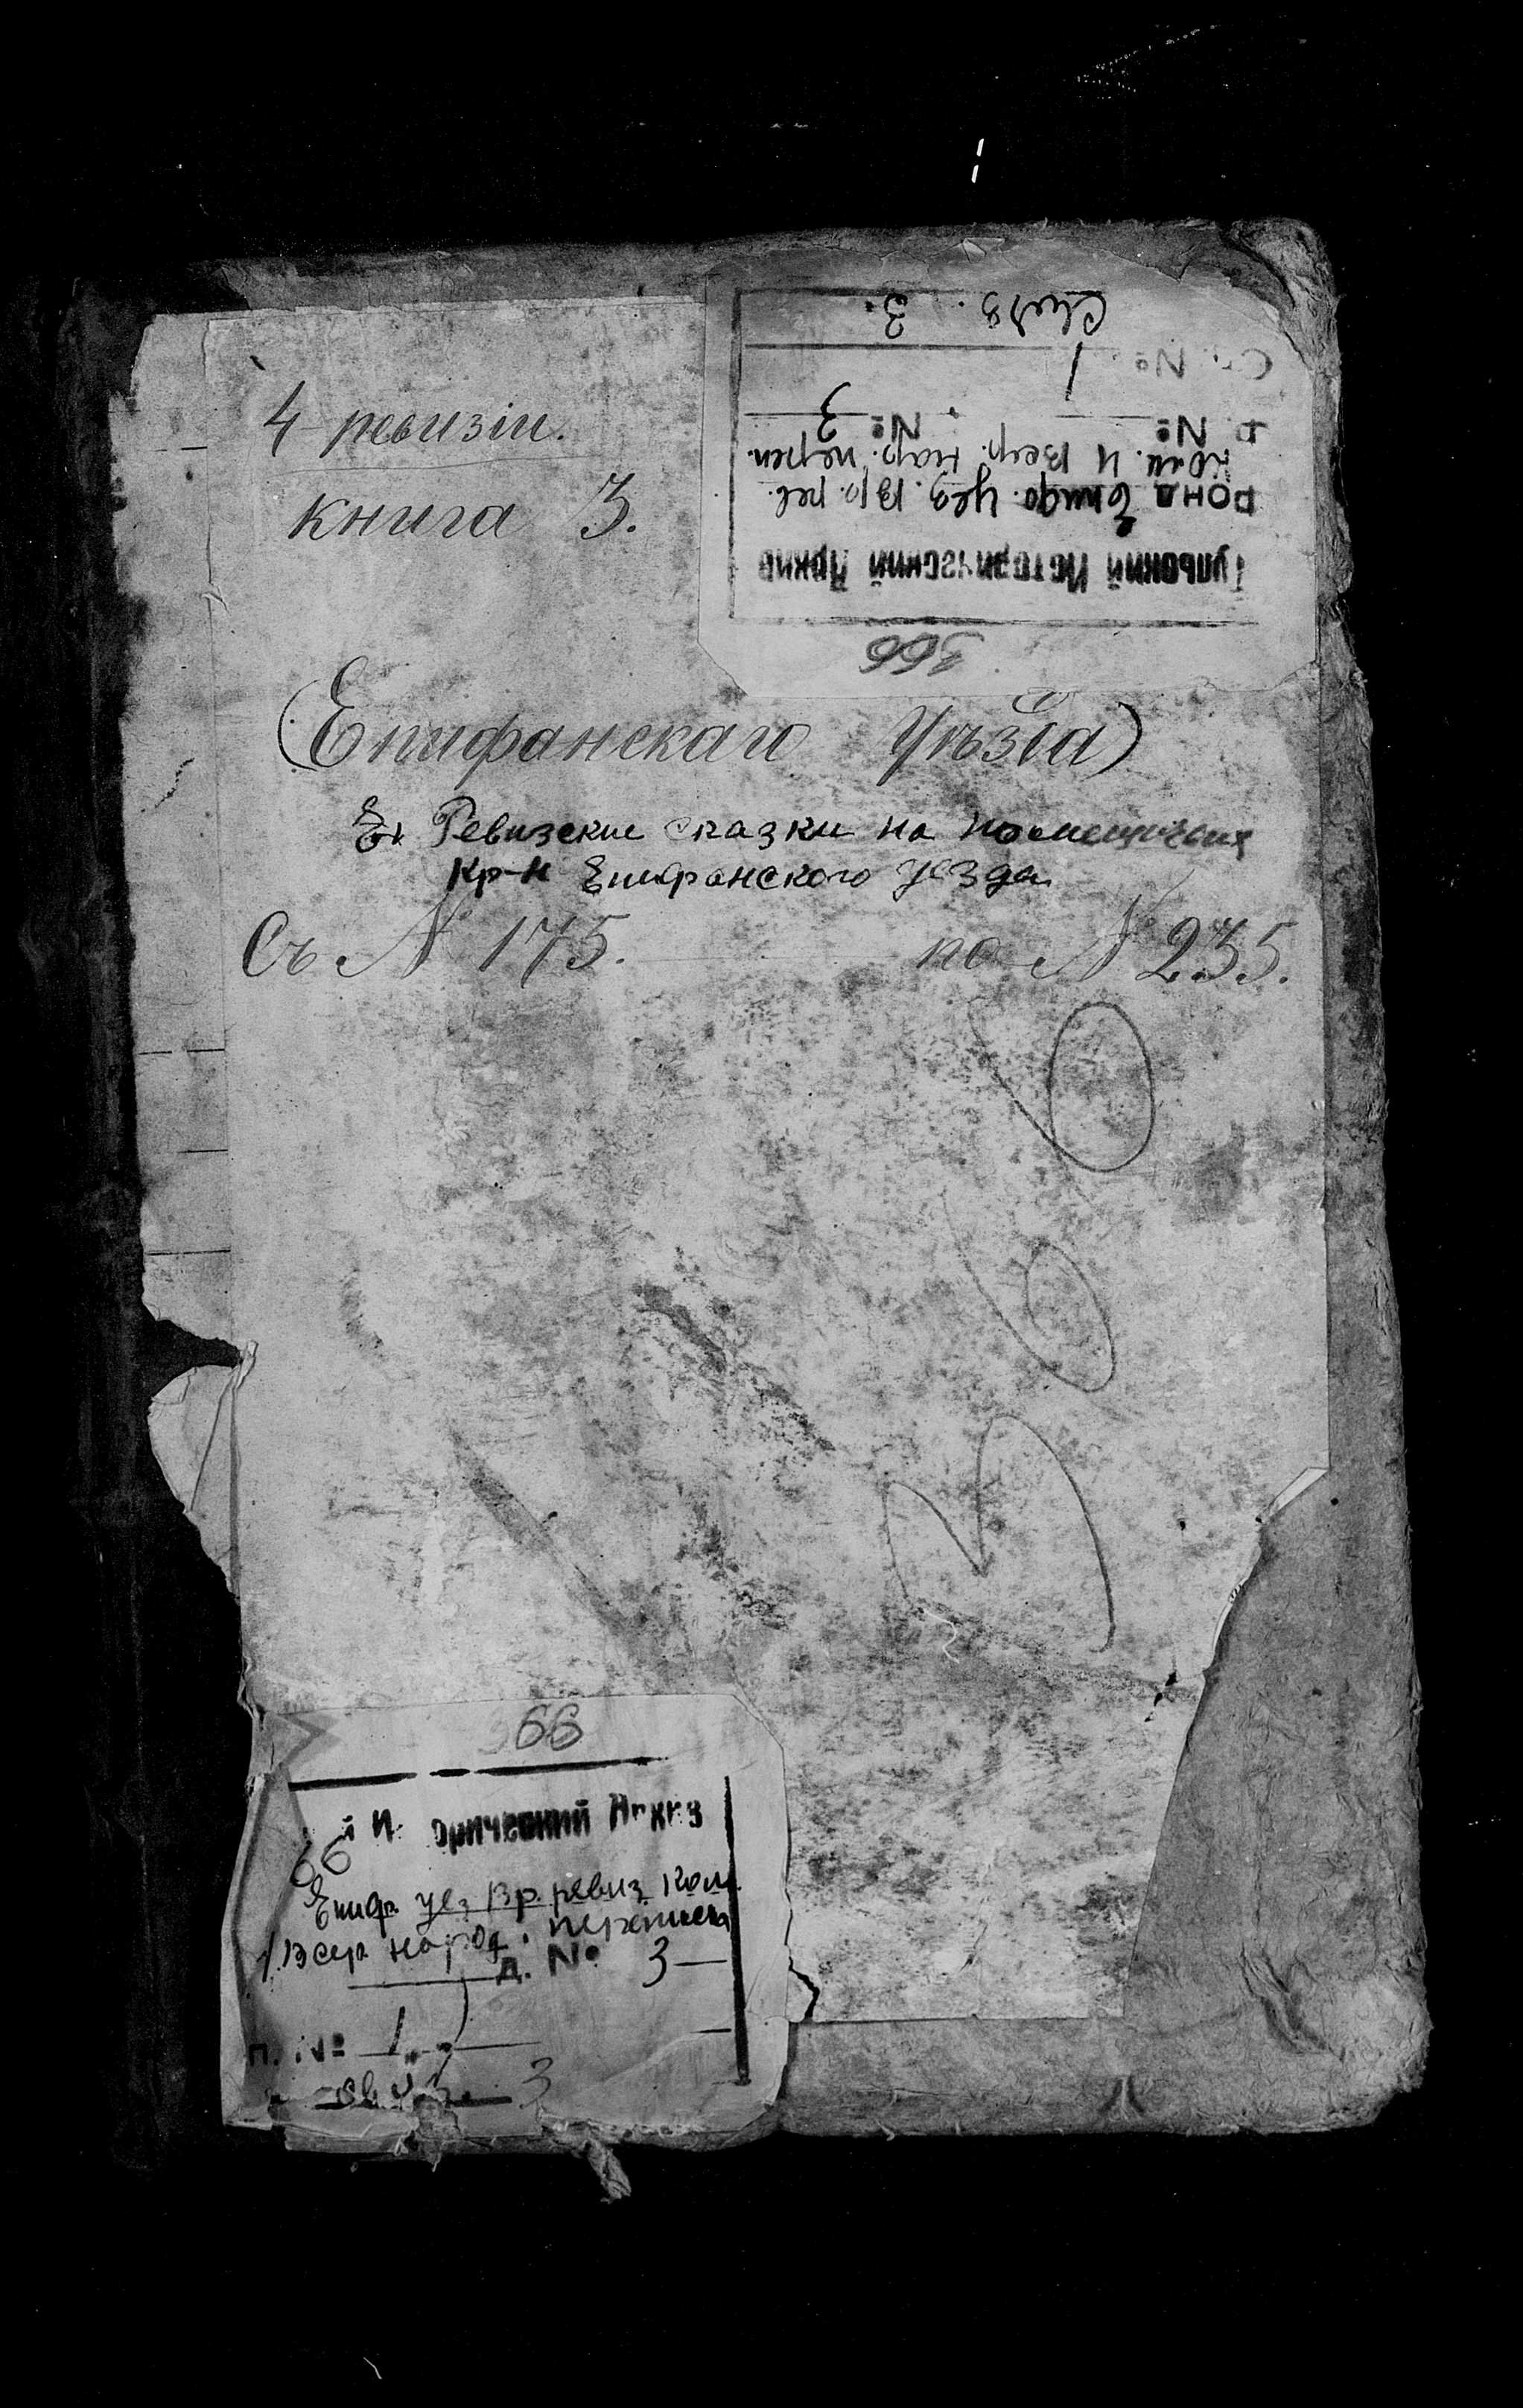 4 ревизіи.
книга 3.
366
Тульский Исторический Архив
Фонд Епиф. уез. Вр. рев.
ком. и Всер. нар. переп.
№ № 3
№ 1
Связ. 3.
(Епифанскаго Уѣзда)
Ревизские сказки на помещичьих
кр-н Епифанского уезда
Съ № 175. по № 235.
366
66
й И орический Архив
Епиф. уез. Вр. ревиз. Ком.
Всер. народ. переписи
Д. № 3
П. № 1
3